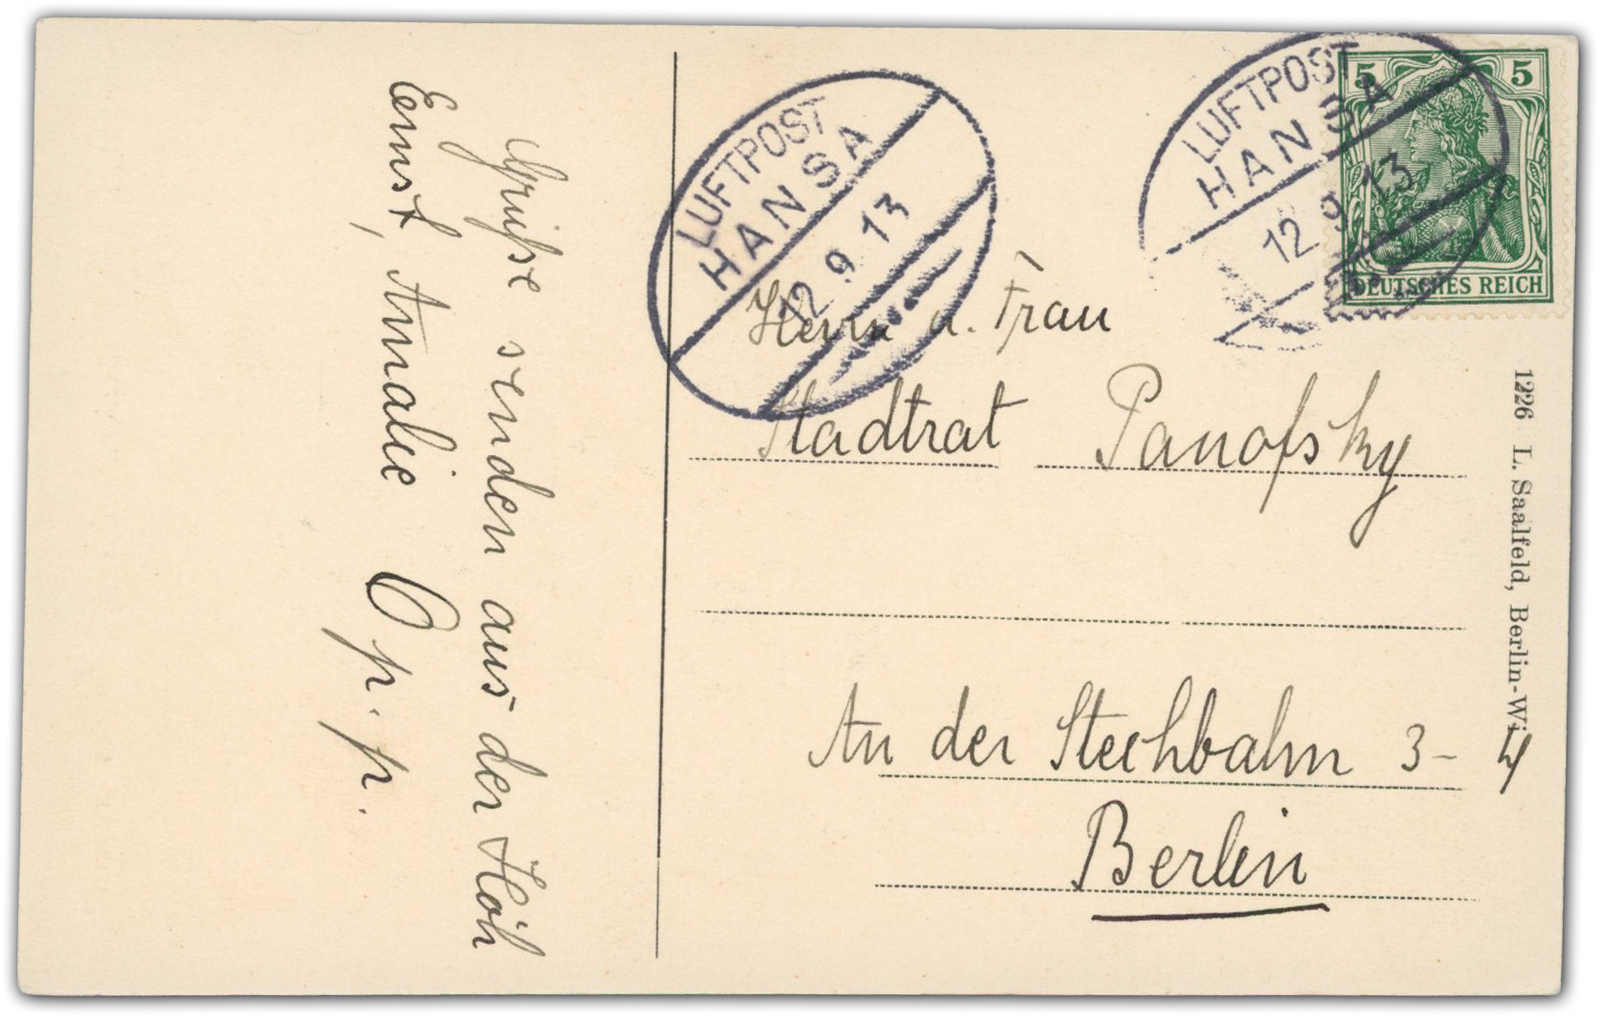 Grüsse senden aus der Höh
Ernst, Amalie Opp.
LUFTPOST
HANSA
12.9.13
LUFTPOST
HANSA
12.9.13
5 5
DEUTSCHES REICH
Herrn u. Frau
Stadtrat Panofsky
An der Stechbahn 3-4
Berlin
1226 L. Saalfeld, Berlin-Wi